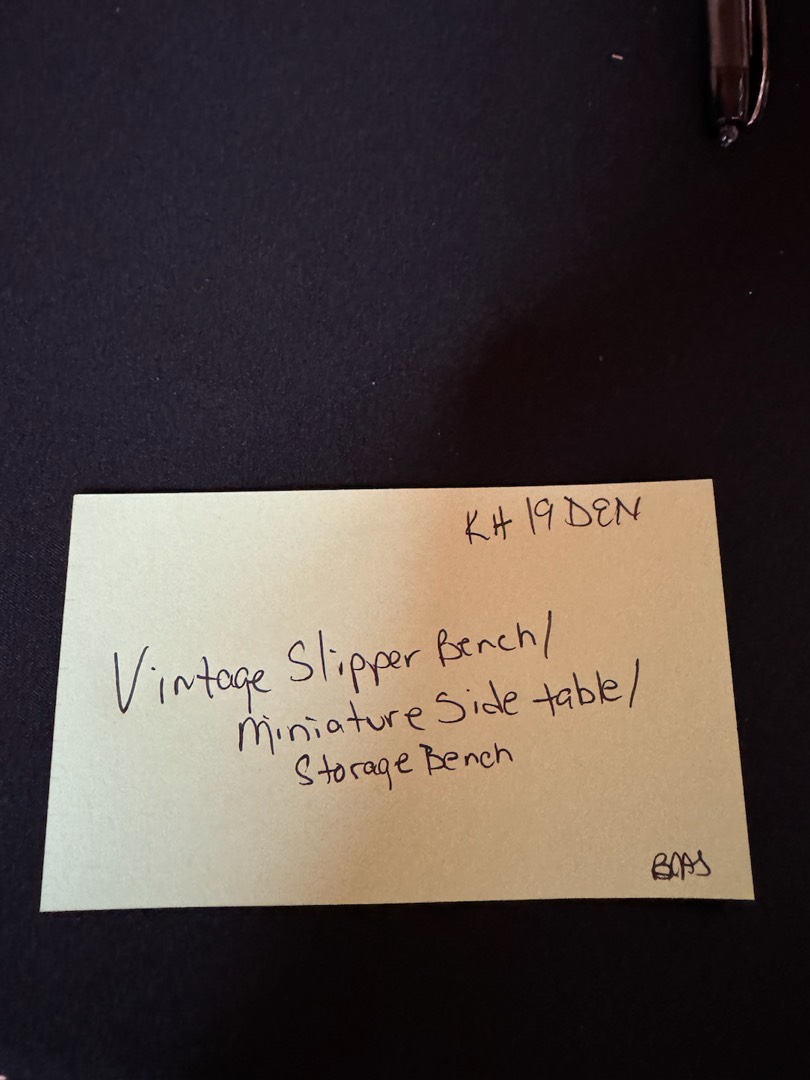 KH 19 DEN
Vintage Slipper Bench/
Miniature Side table/
Storage Bench